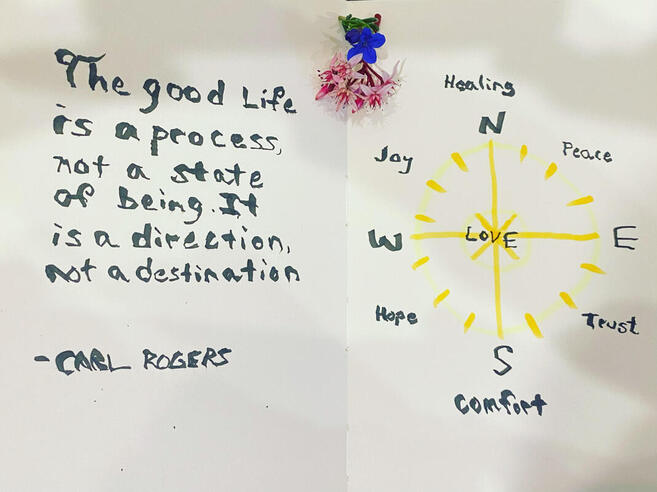 The good Life
is a process,
not a state
of being. It
is a direction,
not a destination
- CARL ROGERS
Healing
N
Joy
Peace
W
LOVE
E
Hope
Trust
S
Comfort